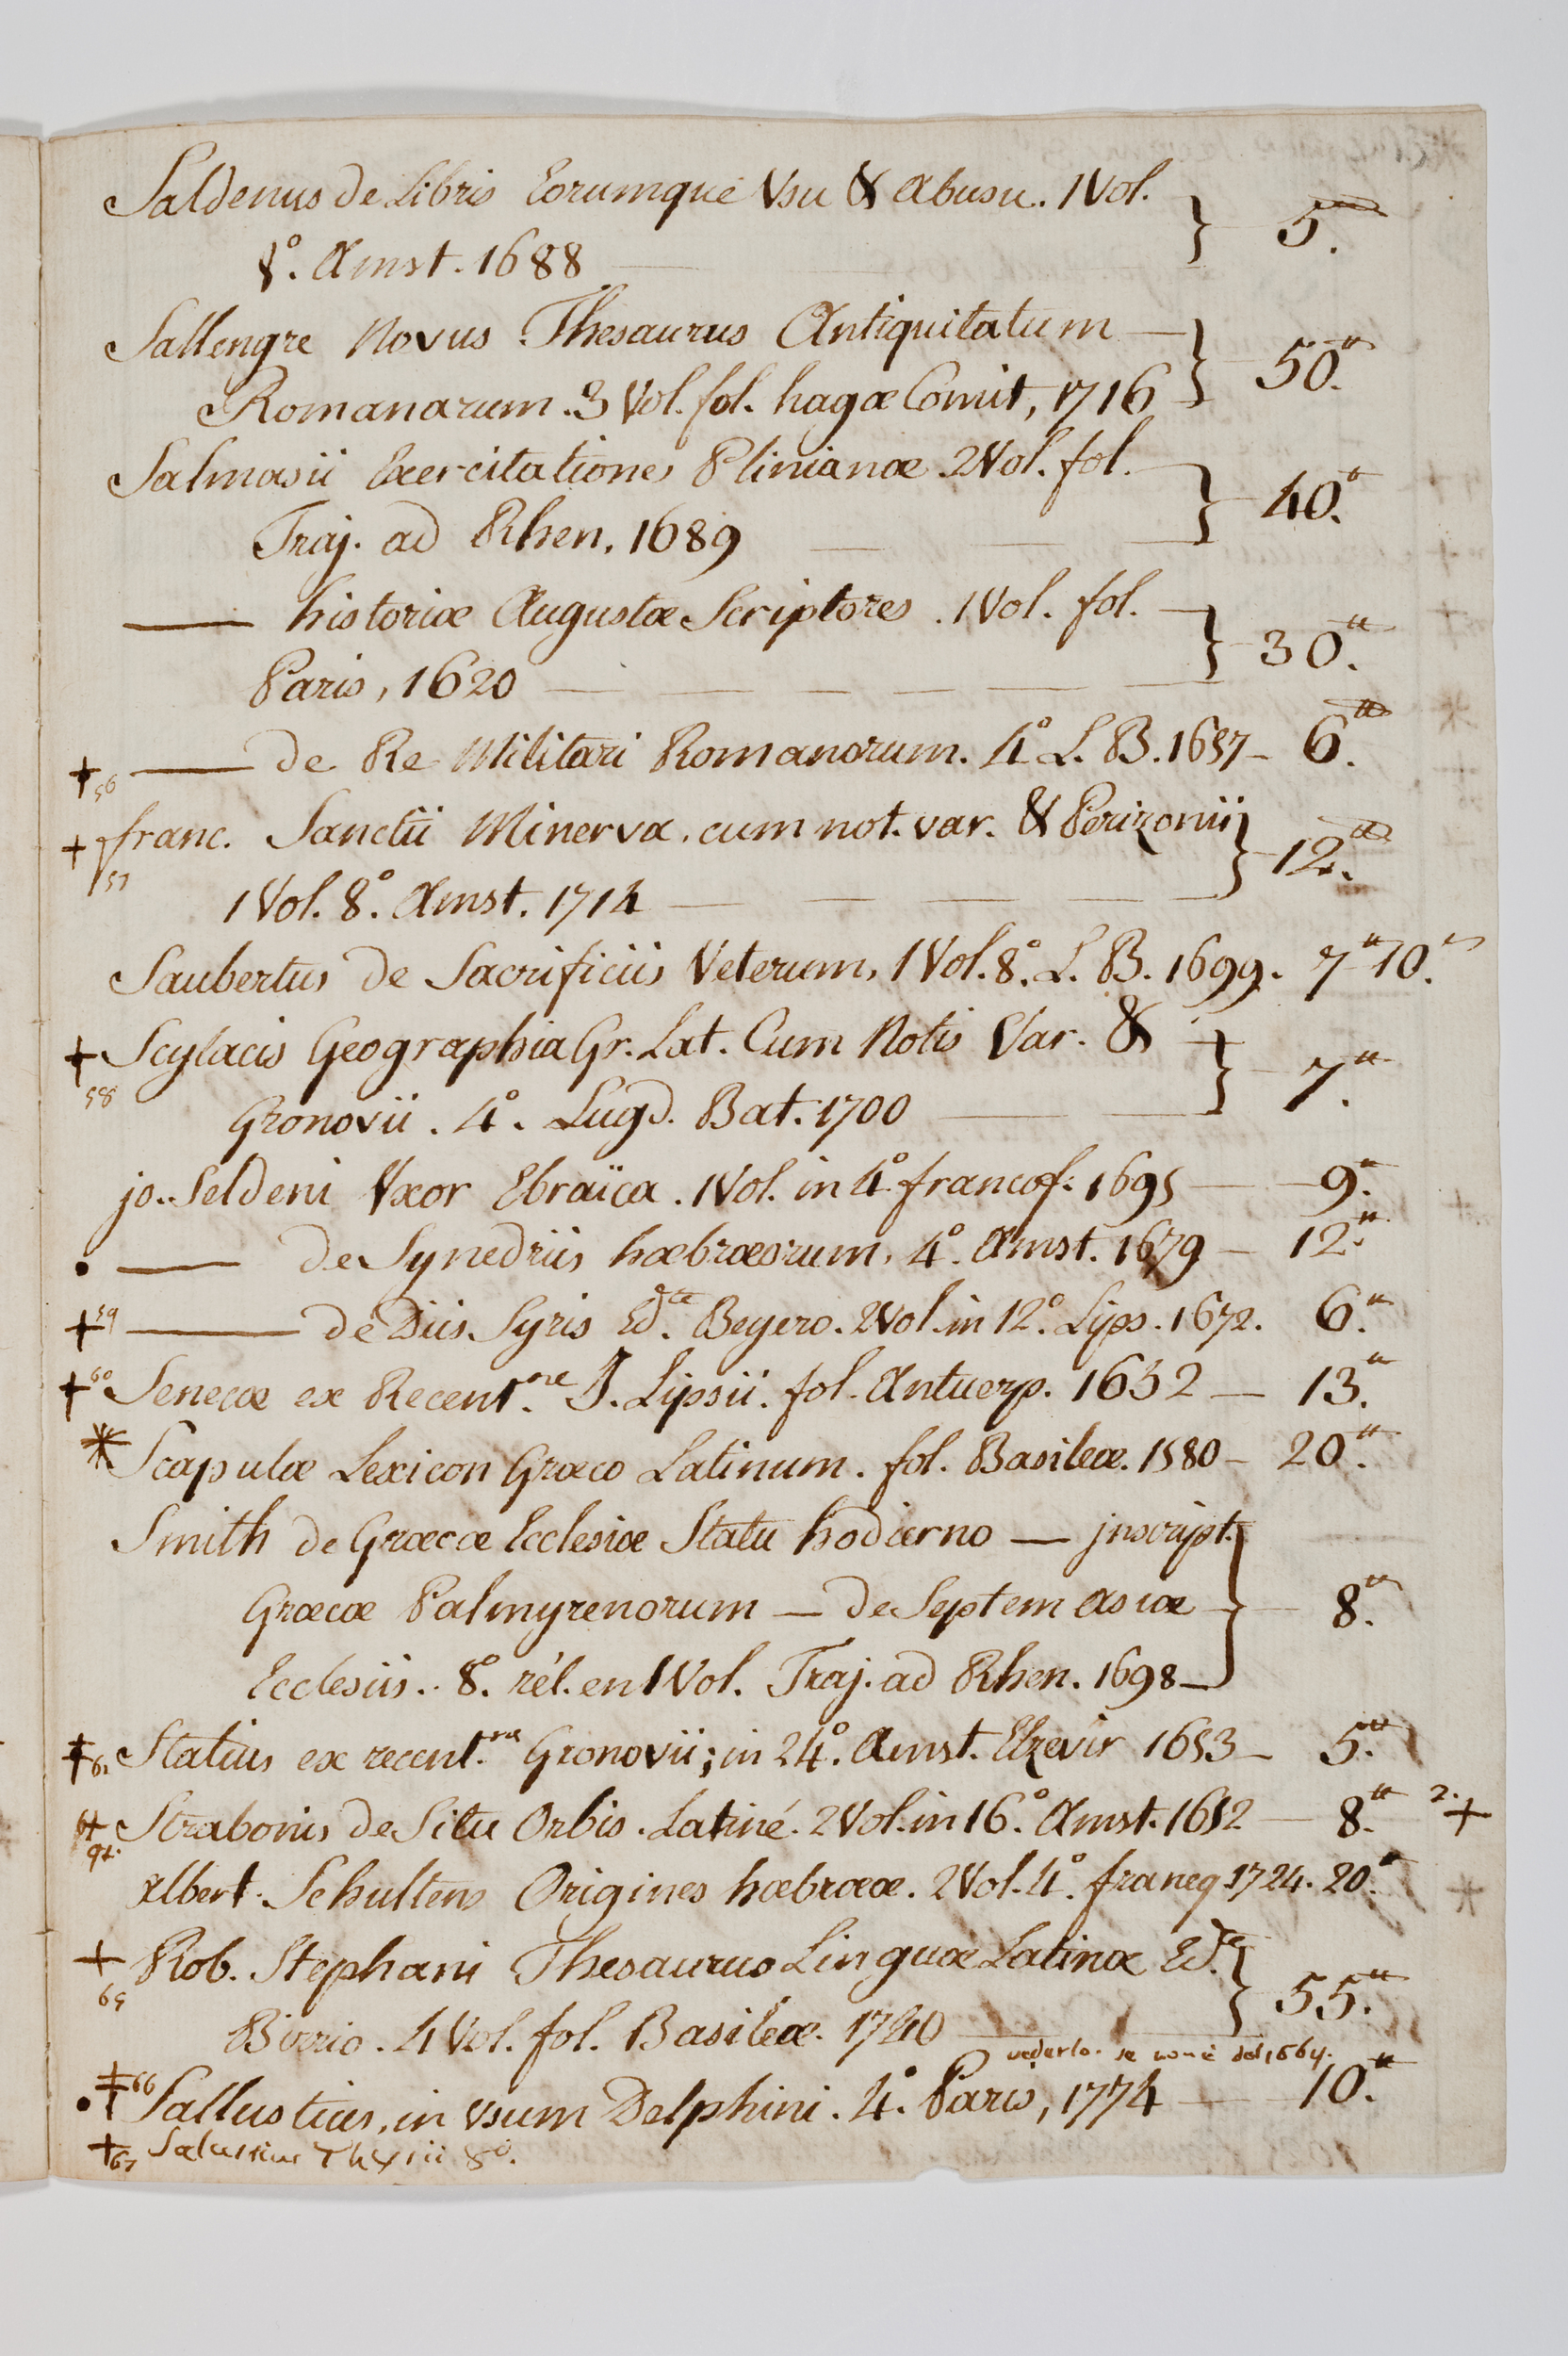 Saldenus de Libris Eorumque Vsu & Abusu. 1 Vol. } 5.
8.° Amst. 1688
Sallengre Novus Thesaurus Antiquitatum — } 50.tt
Romanarum. 3 Vol. fol. hagæ Comit, 1716
Salmasii Exercitationes Plinianæ 2 Vol. fol. } 40.tt
Traj. ad Rhen. 1689 — — —
—— historiæ Augustæ Scriptores. 1 Vol. fol. — } 30.tt
Paris, 1620 — — — — — —
+ 56 —— de Re Militari Romanorum. 4.° L. B. 1657 — 6.tt
+ 57 franc. Sanctii Minerva, cum not. var. & Perizonii } 12.tt
1 Vol. 8.° Amst. 1714 — — — —
Saubertus de Sacrificiis Veterum, 1 Vol. 8.° L. B. 1699. 7.tt 10.s
+ 58 Scylacis Geographia Gr. Lat. Cum Notis Var. & } 7.tt
Gronovii. 4.° Lugd. Bat. 1700 — —
jo. Seldeni Vxor Ebraïca. 1 Vol. in 4.° francof. 1695 — 9.tt
• —— de Synedriis hæbræorum, 4.° Amst. 1679 — 12.tt
+ 59 —— de Diis Syris Ed.te Beyero. 2 Vol. in 12.° Lips. 1672. 6.tt
+ 60 Senecæ ex Recent.ne J. Lipsii. fol. Antuerp. 1652 — 13.tt
* Scapulæ Lexicon Græco Latinum. fol. Basileæ. 1580 — 20.tt
Smith de Græcæ Ecclesiæ Statu hodierno — jnscript. }
Græcæ Palmyrenorum — de Septem asiæ — 8.tt
Ecclesiis. 8.° rél. en 1 Vol. Traj. ad Rhen. 1698 —
‡ 61 Statius ex recent.ne Gronovii; in 24.° Amst. Elzevir 1653 — 5.tt
Strabonis de Situ Orbis. Latiné. 2 Vol. in 16.° Amst. 1652 — 8.tt 2. +
Albert. Schultens Origines hæbrææ. 2 Vol. 4.° franeq. 1724. 20.tt
+ 65 Rob. Stephani Thesaurus Linguæ Latinæ Ed.te } 55.tt
Birrio. 4 Vol. fol. Basileæ. 1740 —
vederlo. se non è del 1664.
•‡ 66 Sallustius, in vsum Delphini. 4.° Paris, 1774 — 10.tt
+ 67 Salustius Thysii 8°.